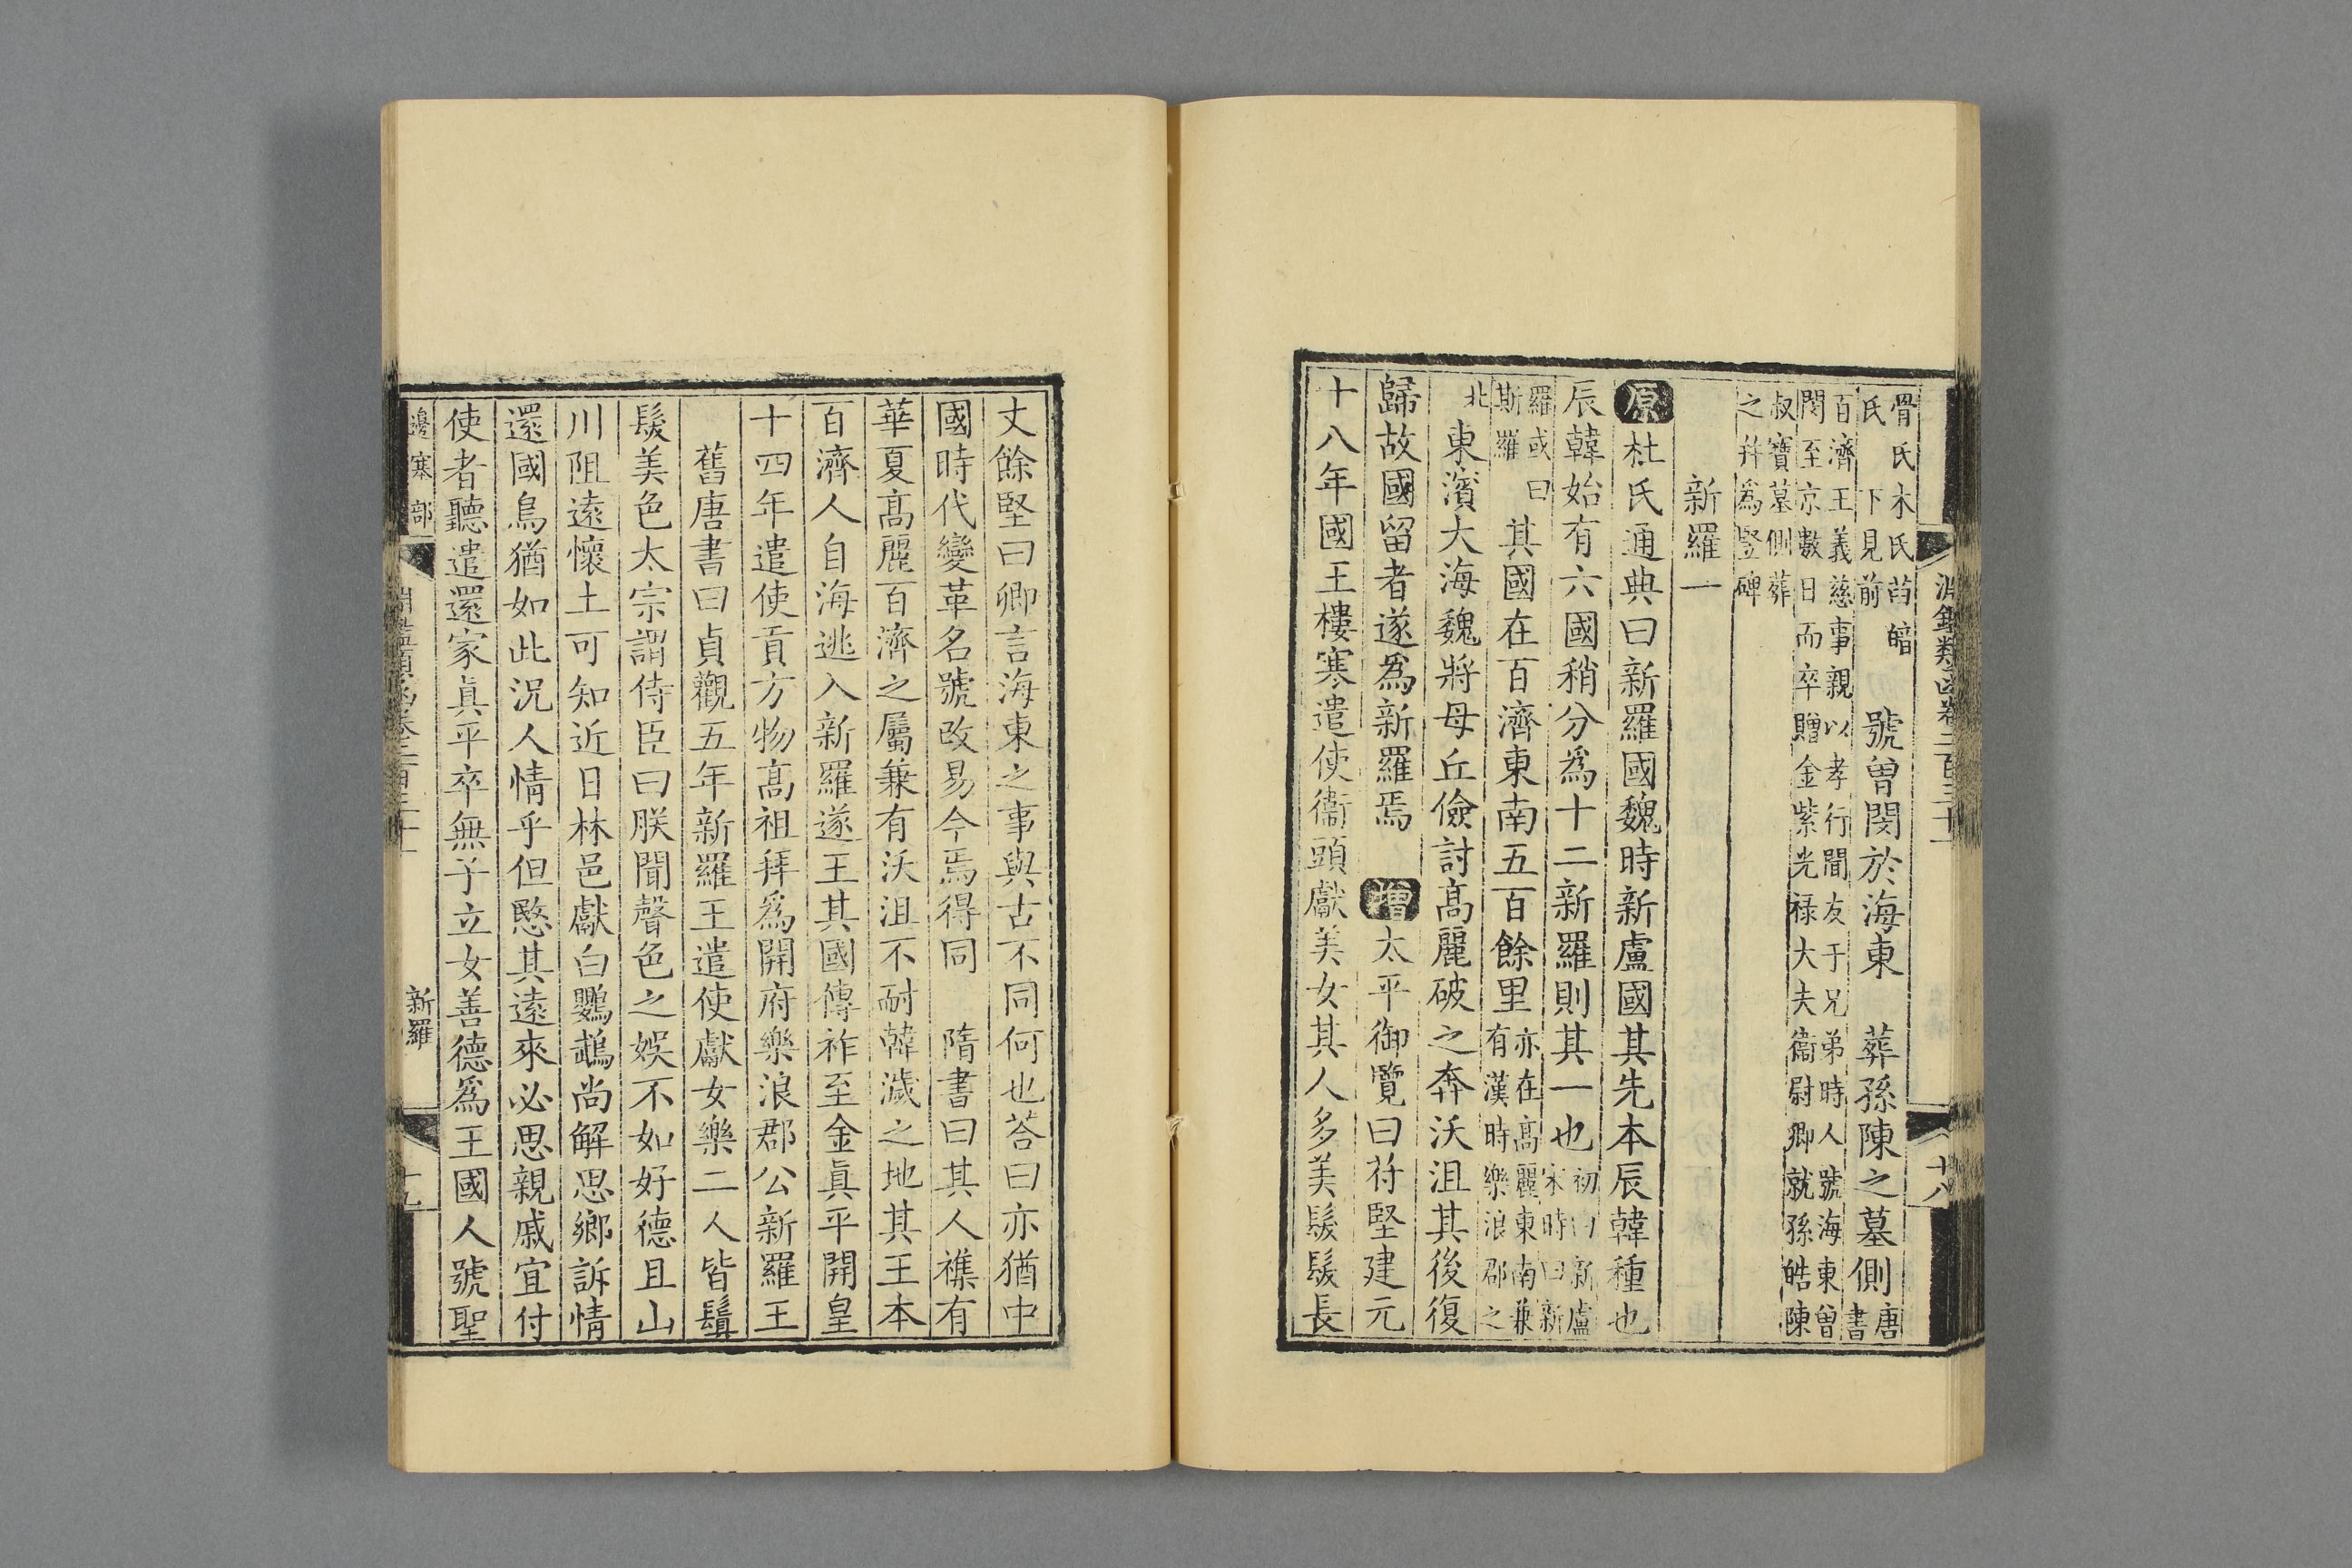 淵鑑類函卷二百三十一 十八
胷氏木氏苩㫧
氏 下見前
號曾閔於海東 葬孫陳之墓側
唐
書
百濟王義慈事親以孝行聞友于兄弟時人號海東曾
閔至京數日而卒贈金紫光禄大夫衞尉卿就孫皓陳
叔寶墓側葬
之幷爲竪碑
新羅一
原杜氏通典曰新羅國魏時新盧國其先本辰韓種也
辰韓始有六國稍分爲十二新羅則其一也
初曰新盧
宋時曰新
羅或曰
斯羅
其國在百濟東南五百餘里
亦在髙麗東南兼
有漢時樂浪郡之
北
東濱大海魏將毋丘儉討髙麗破之奔沃沮其後復
歸故國留者遂爲新羅焉 增太平御覽曰苻堅建元
十八年國王樓寒遣使衞頭獻美女其人多美髮髮長
丈餘堅曰卿言海東之事與古不同何也荅曰亦猶中
國時代變革名號改易今焉得同 隋書曰其人襍有
華夏髙麗百濟之屬兼有沃沮不耐韓濊之地其王本
百濟人自海逃入新羅遂王其國傳祚至金眞平開皇
十四年遣使貢方物髙祖拜爲開府樂浪郡公新羅王
舊唐書曰貞觀五年新羅王遣使獻女樂二人皆鬒
髮美色太宗謂侍臣曰朕聞聲色之娛不如好德且山
川阻遠懷土可知近日林邑獻白鸚鵡尚解思鄉訴情
還國鳥猶如此況人情乎但愍其遠來必思親戚宜付
使者聽遣還家眞平卒無子立女善德爲王國人號聖
邊塞部 淵鑑類函卷二百三十一 新羅 十九